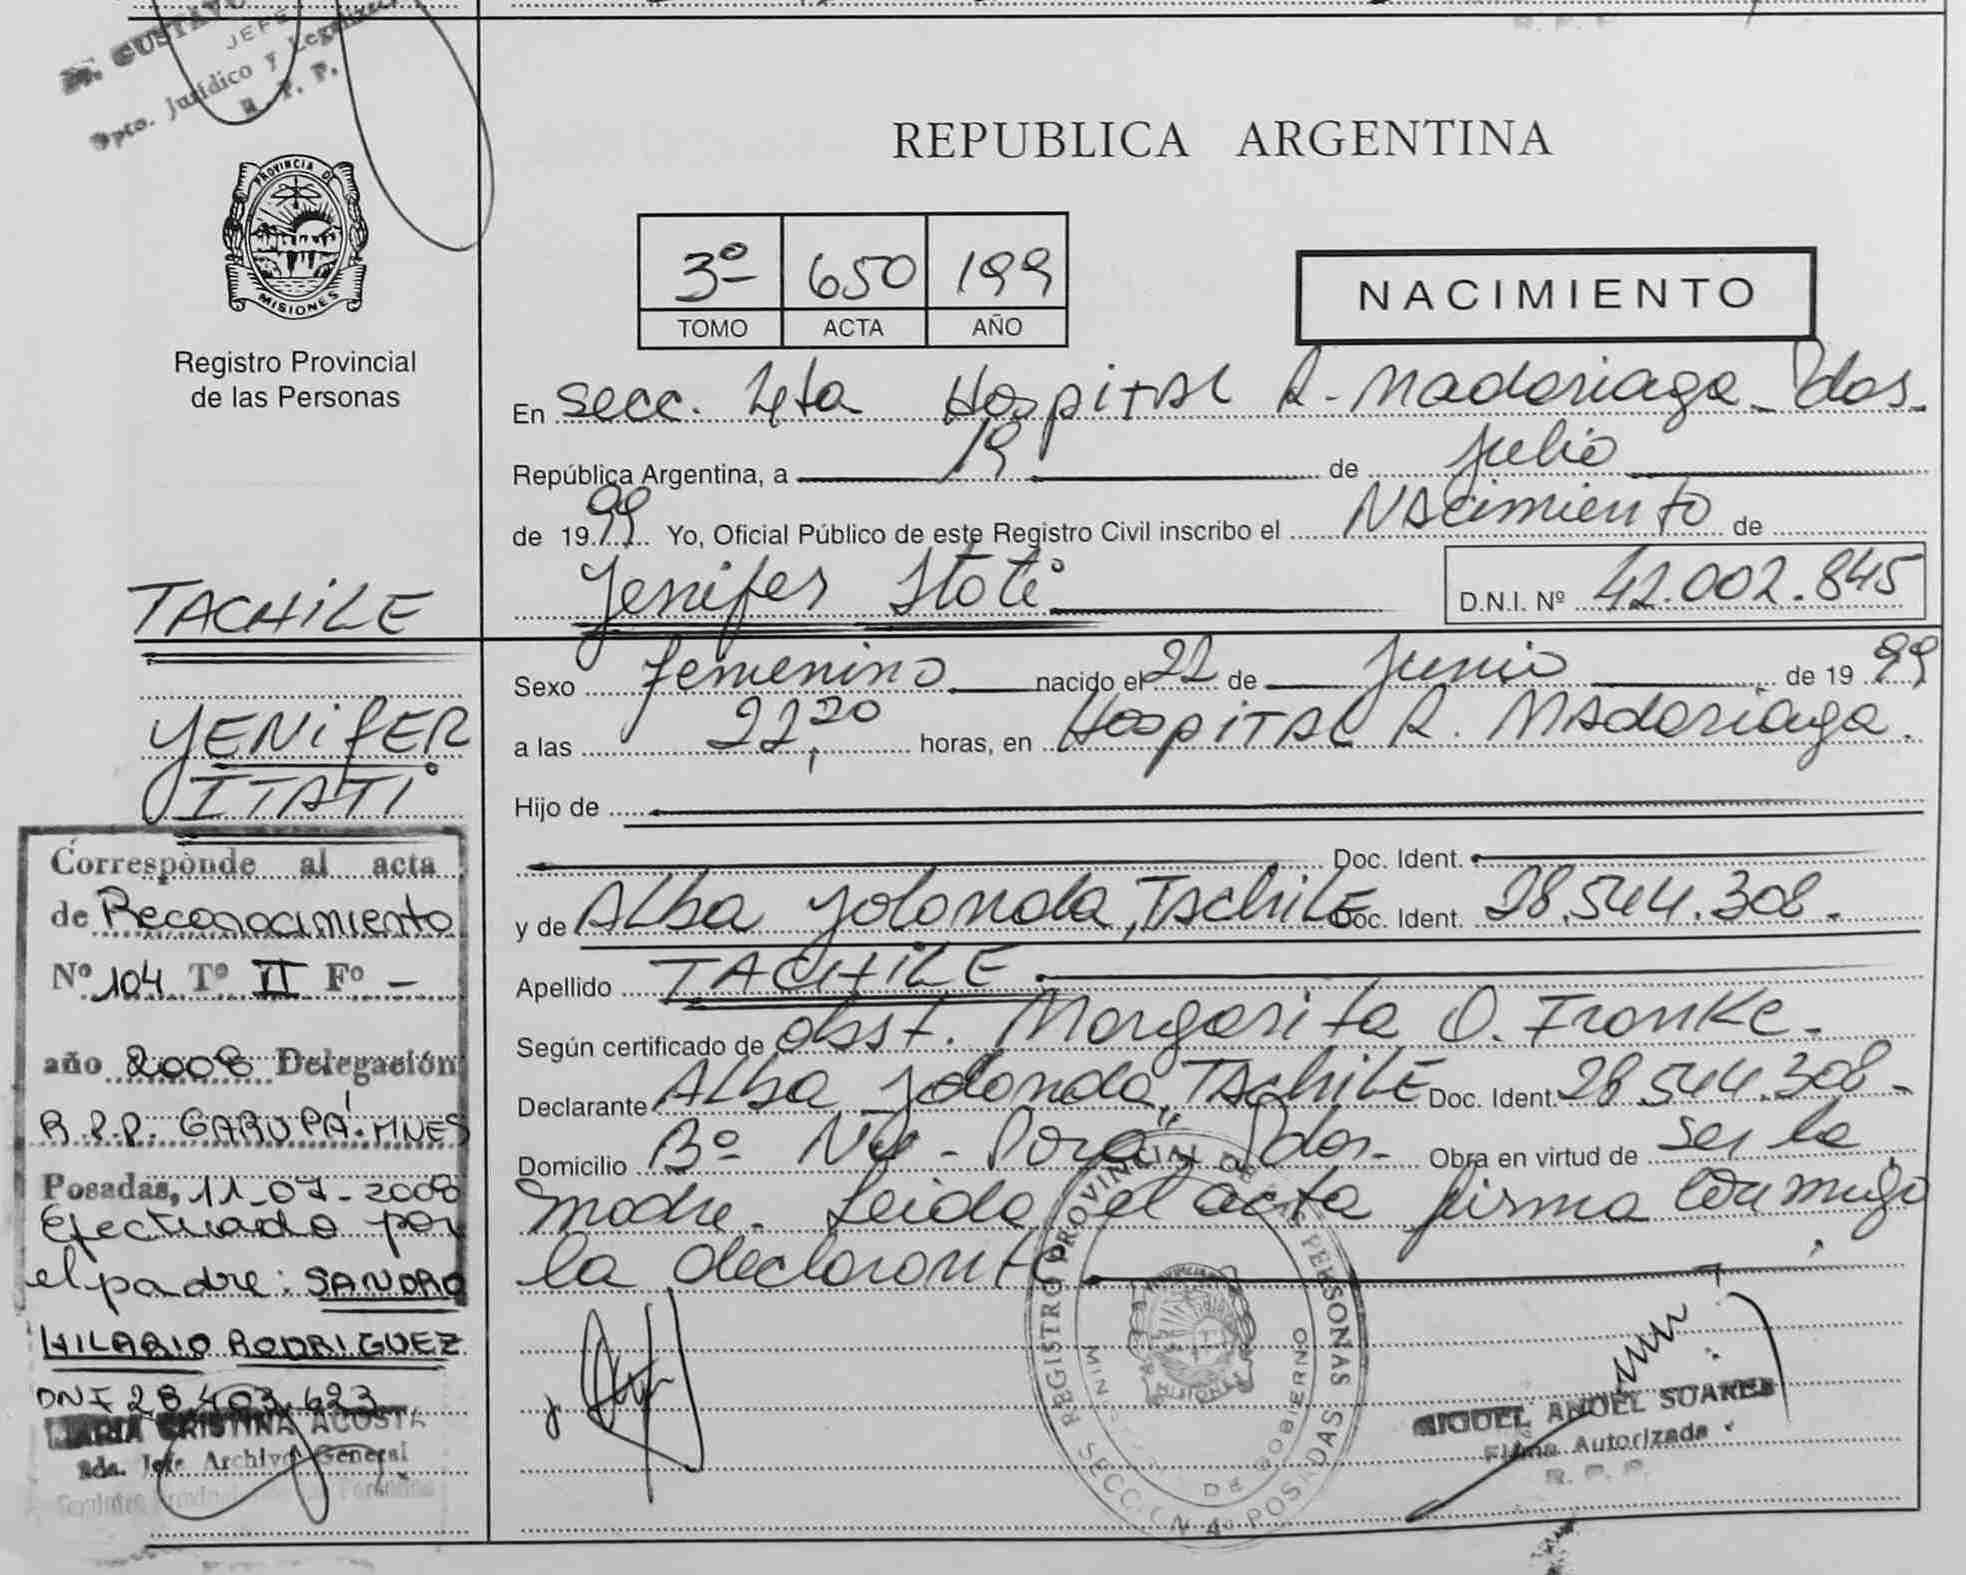 Dr. GUSTAVO
JEFE
Dpto. Jurídico y Legaliza
R. P. P.
PROVINCIA DE
MISIONES
Registro Provincial
de las Personas
REPUBLICA ARGENTINA
3º 650 199
TOMO ACTA AÑO
NACIMIENTO
En Secc. 4ta Hospital R. Madariaga - Pdas.
República Argentina, a 19 de Julio
de 1999 Yo, Oficial Público de este Registro Civil inscribo el Nacimiento de
Yenifer Itatí D.N.I. Nº 42.002.845
TACHILE
YENIFER
ITATI
Sexo femenino nacido el 22 de Junio de 1999
a las 22,20 horas, en Hospital R. Madariaga.
Hijo de
Doc. Ident.
y de Alba Yolanda, Tachile Doc. Ident. 28.544.308.-
Apellido TACHILE
Según certificado de obst. Margarita O. Franke.-
Declarante Alba Yolanda, Tachile Doc. Ident. 28.544.308.-
Domicilio Bº Ñu-Porá Pdas.- Obra en virtud de ser la
madre. Leida el acta firma conmigo
la declarante
Corresponde al acta
de Reconocimiento
Nº 104 Tº II Fº -
año 2008 Delegación
R.P.P. GARUPÁ. MNES
Posadas, 11-07-2008
Efectuado por
el padre: SANDRO
HILARIO RODRIGUEZ
DNI 28.403.623
MARIA CRISTINA ACOSTA
Jefe Archivo General
REGISTRO PROVINCIAL DE PERSONAS
DE GOBIERNO
MISIONES
SECCIÓN 4º POSADAS
MIGUEL ANGEL SUAREZ
Firma Autorizada
R. P. P.